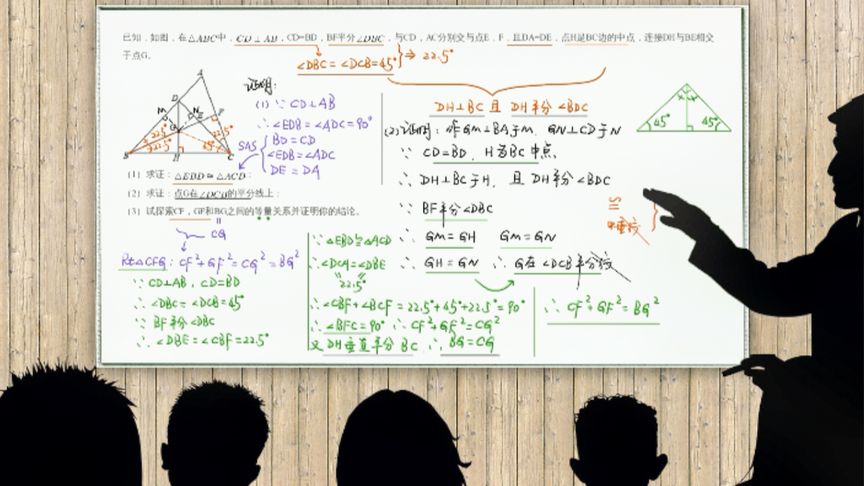 已知，如图，在△ABC中，CD⊥AB，CD=BD，BF平分∠DBC，与CD，AC分别交与点E、F，且DA=DE，点H是BC边的中点，连接DH与BE相交
于点G。
∠DBC=∠DCB=45° ⇒ 22.5°
证明:
(1) ∵ CD⊥AB
∴ ∠EDB=∠ADC=90°
SAS
BD=CD
∠EDB=∠ADC
DE=DA
A
D
M
N
E
F
G
B
H
C
22.5°
22.5°
22.5°
45°
(1) 求证：△EBD≌△ACD；
(2) 求证：点G在∠DCB的平分线上；
(3) 试探索CF，GF和BG之间的等量关系并证明你的结论。
CG
DH⊥BC 且 DH平分∠BDC
(2)证明: 作GM⊥BA于M, GN⊥CD于N
∵ CD=BD, H为BC中点,
∴ DH⊥BC于H, 且 DH平分∠BDC
∵ BF平分∠DBC
∴ GM=GH GM=GN
∴ GH=GN ∴ G在∠DCB平分线
45° 45°
Rt△CFG: CF²+GF²=CG²=BG²
∵ CD⊥AB, CD=BD
∴ ∠DBC=∠DCB=45°
∵ BF平分∠DBC
∴ ∠DBE=∠CBF=22.5°
∵ △EBD≌△ACD
∴ ∠DCA=∠DBE
22.5°
∴ ∠CBF+∠BCF=22.5°+45°+22.5°=90°
∴ ∠BFC=90° ∴ CF²+GF²=CG²
又DH垂直平分BC, ∴ BG=CG
∴ CF²+GF²=BG²